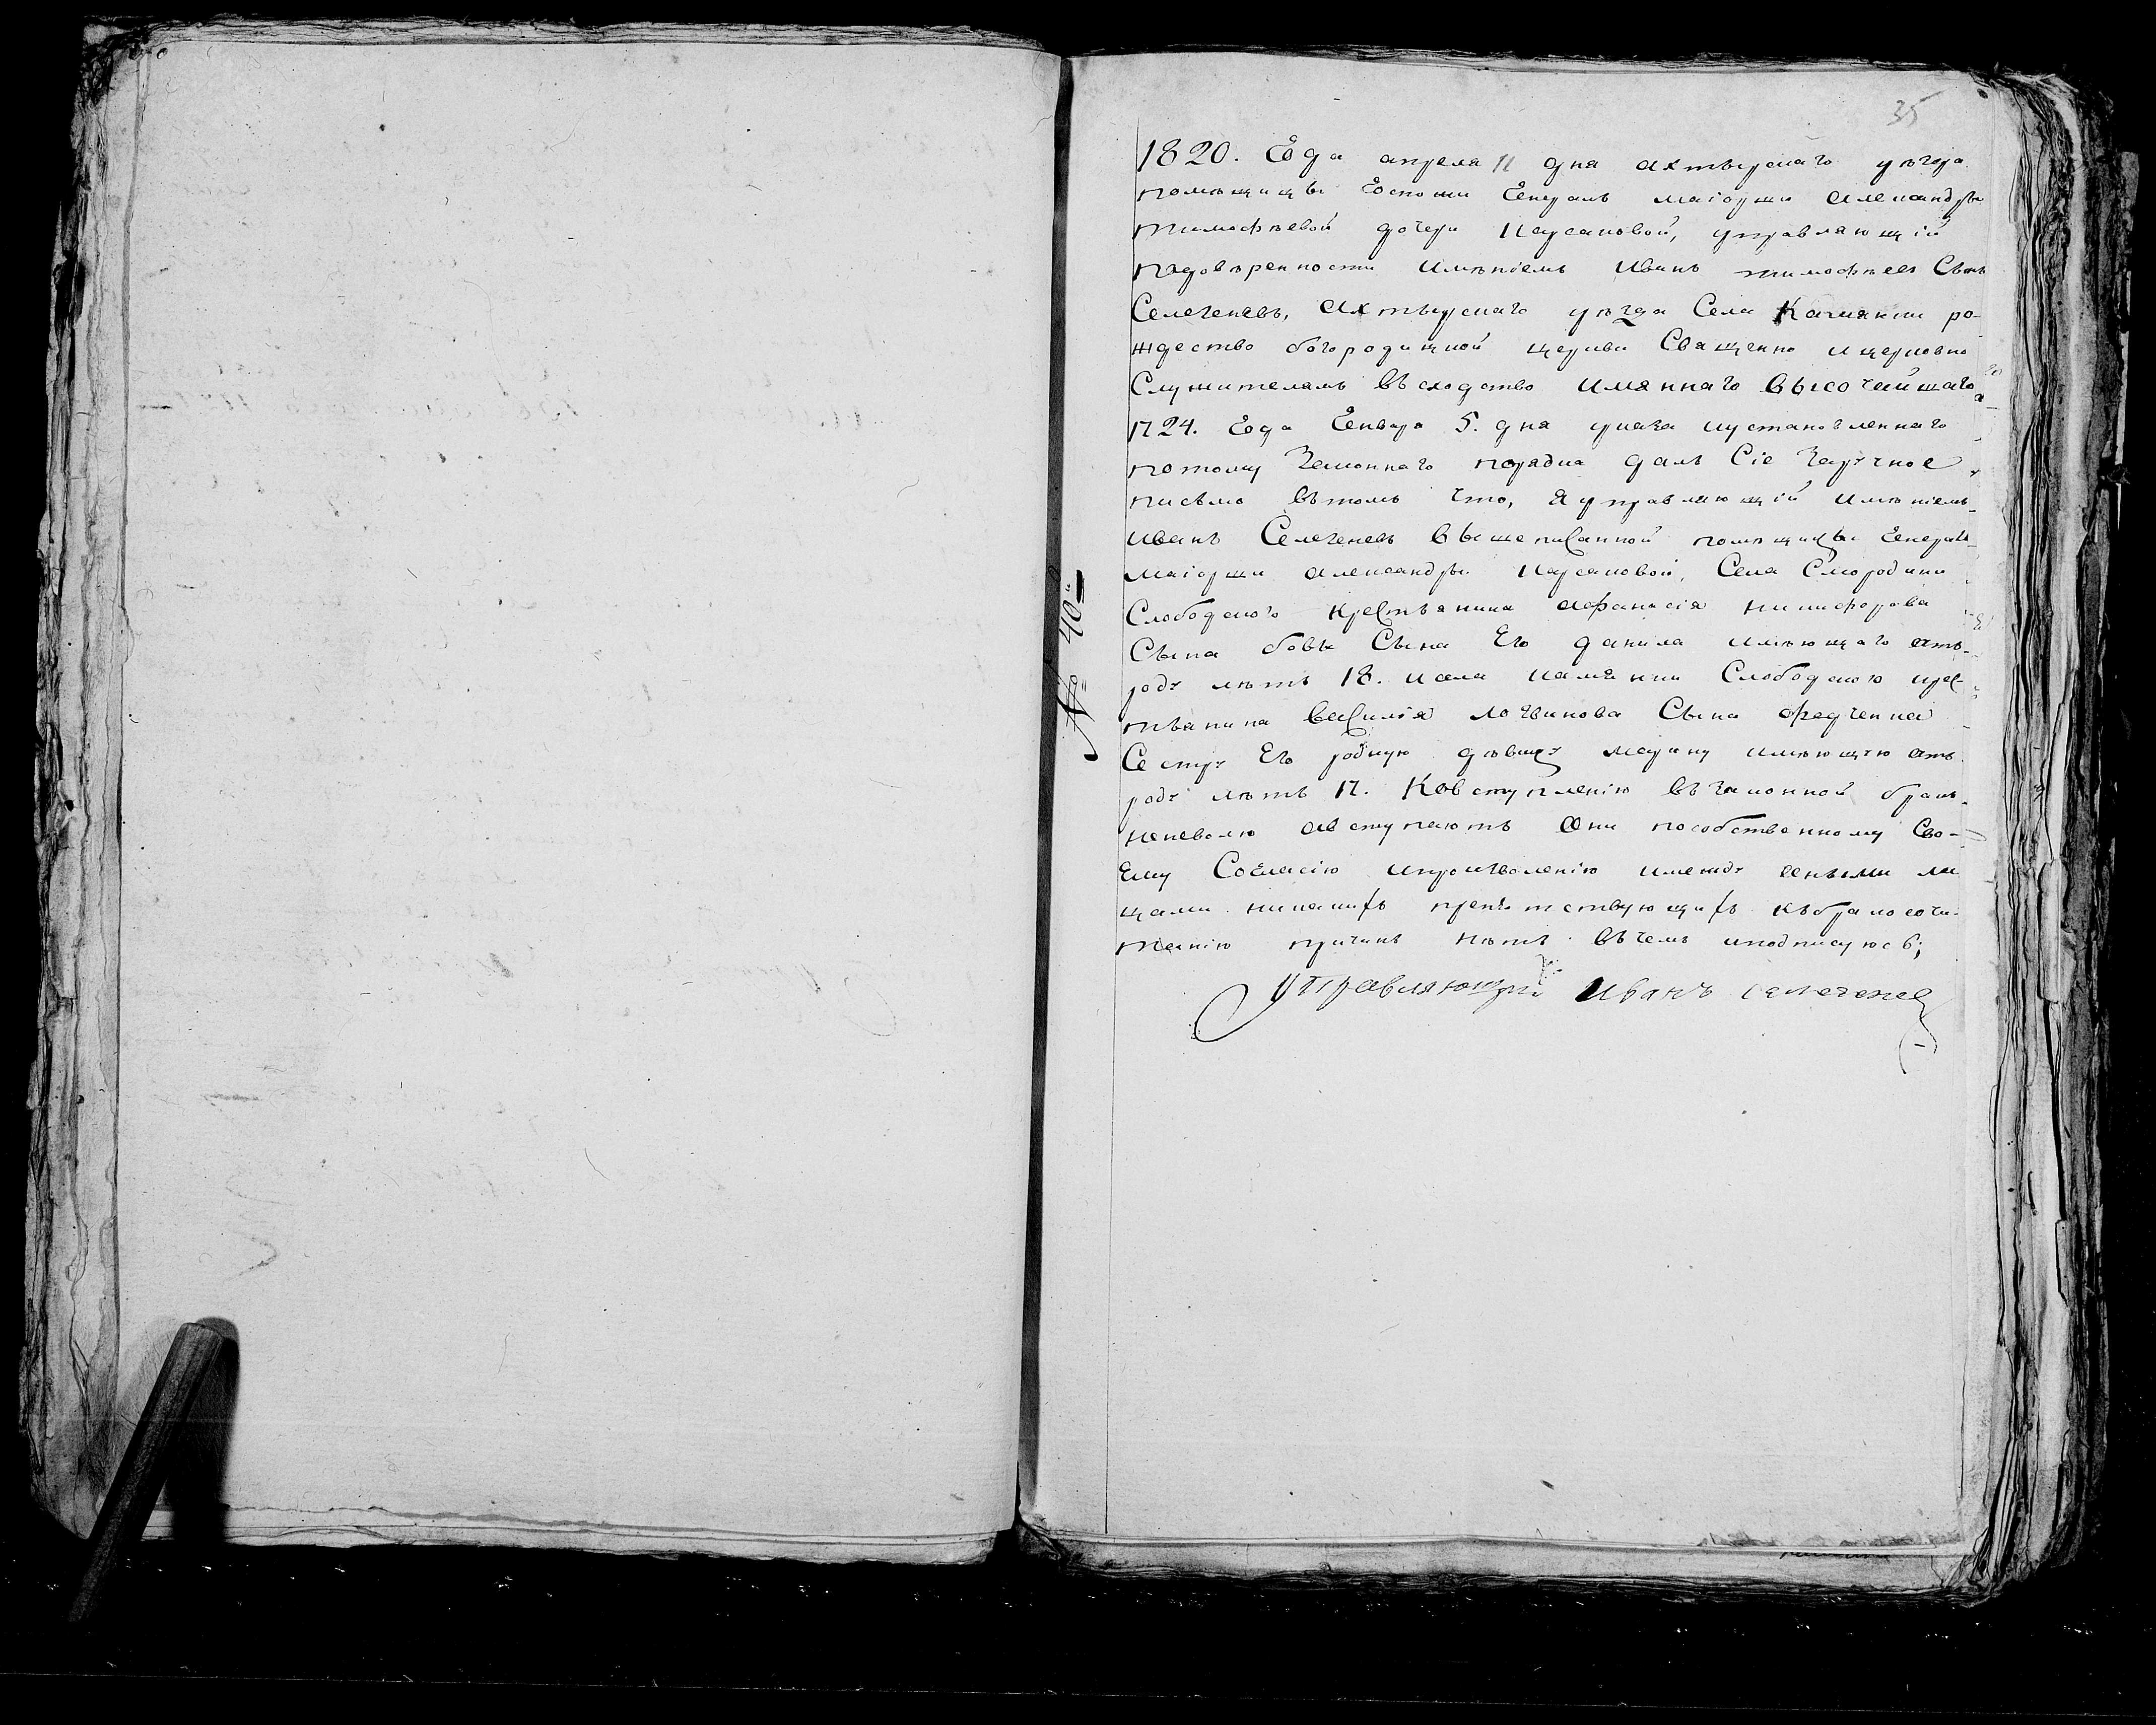 35
1820. Года апреля 11 дня ахтырскаго уѣзда
помѣщицы Госпожи Генералъ маіорши александры
тимофѣевой дочери Карсаковой, управляющій
подовѣренности имѣніемъ Иванъ тимофѣевъ Сынъ
Селезеневъ, ахтырскаго уѣзда Села Камянки ро-
ждество богородицкой церкви Священно ицерковно
Служителямъ въсходство имяннаго высочайшаго
1724. Года Генваря 5. дня указа иустановленнаго
потому Законнаго порядка далъ Сіе Заручное
письмо вътомъ что, я управляющій имѣніемъ
Иванъ Селезеневъ вышеписанной помѣщицы Генералъ
маіорши александры Карсаковой, Села Смородини
Слободскаго крестьянина афанасія никифорова
Сына Сына Его данила имѣющаго отъ
роду лѣтъ 18. исела камянки Слободскаго крес-
тьянина василія логвинова Сына федченка
Сестру Его родную дѣвицу марину имѣющую отъ
роду лѣтъ 17. Ковступленію въЗаконной бракъ
неневолю авступаютъ они пособственному Сво-
ему Согласію ипроизволенію имежду оными ли
цами никакихъ препятствующихъ къбракосоче-
танію причинъ нѣтъ вчемъ иподписуюсь;
управляющій Иванъ Селезенев
№ 40й